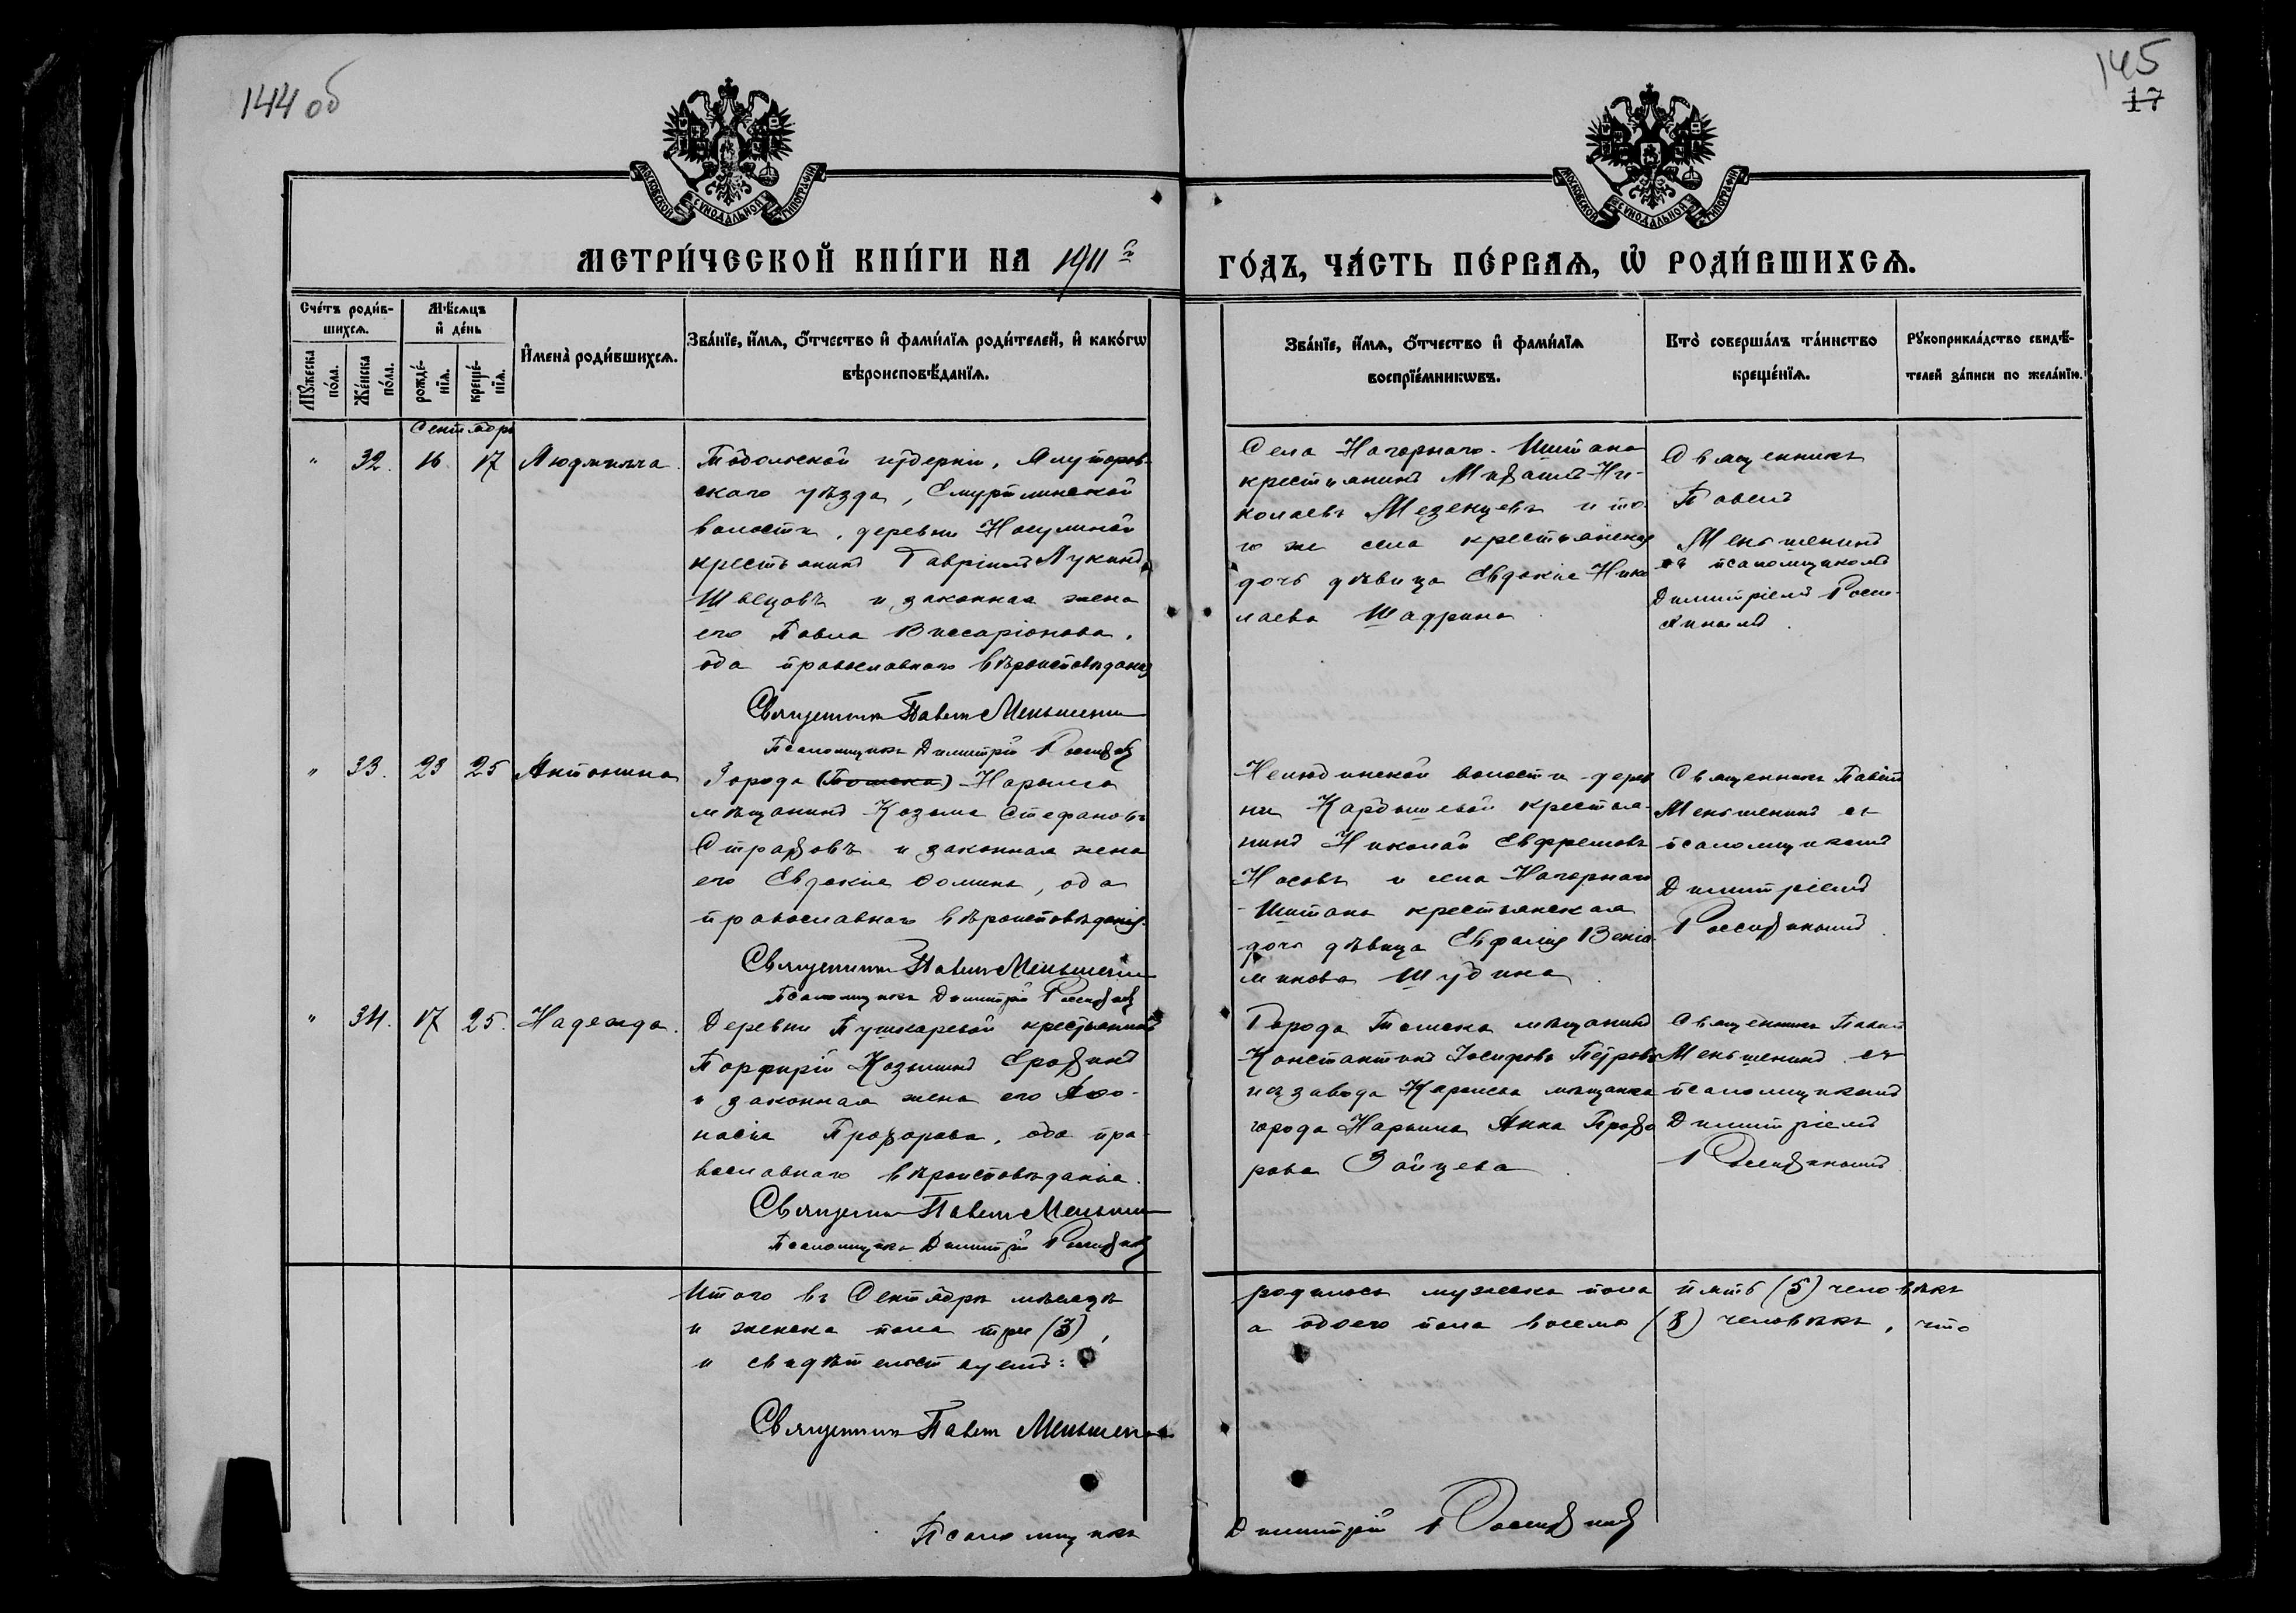 144 об
145
17
МОСКОВСКОЙ СУНОДАЛЬНОЙ ТИПОГРАФІИ
МОСКОВСКОЙ СУНОДАЛЬНОЙ ТИПОГРАФІИ
МЕТРИ́ЧЕСКОЙ КНИ́ГИ НА 1911 г
ГО́ДЪ, ЧА́СТЬ ПЕ́РВАѦ, Ѡ҆ РОДИ́ВШИХСѦ.
Сче́тъ роди́в-
шихсѧ.
Мꙋ́жеска по́ла.
Же́нска по́ла.
Мѣ́сѧцъ
и҆ де́нь
рожде́-
нїѧ.
креще́-
нїѧ.
И҆мена̀ роди́вшихсѧ.
Зва́нїе, и҆́мѧ, ѻ҆́тчество и҆ фами́лїѧ роди́телей, и҆ како́гѡ
вѣроисповѣ́данїѧ.
Зва́нїе, и҆́мѧ, ѻ҆́тчество и҆ фами́лїѧ
воспрїе́мникѡвъ.
Кто̀ соверша́лъ та́инство
креще́нїѧ.
Рꙋкоприкла́дство свидѣ́-
телей за́писи по жела́нїю.
Сентябрь
" 32. 16. 17 Людмилла.
Тобольской губерніи, Ялуторов-
скаго уѣзда, Емуртлинской
волости, деревни Носулиной
крестьянинъ Гавріилъ Лукинъ
Швецовъ и законная жена
его Павла Виссаріонова,
оба православнаго вѣроисповѣданія
Священникъ Павелъ Меньшенинъ
Псаломщикъ Димитрій
Села Нагорнаго-Иштана
крестьянинъ Михаилъ Ни-
колаевъ Мезенцевъ и то-
го же села крестьянская
дочь дѣвица Евдокія Нико
лаева Шадрина.
Священникъ
Павелъ
Меньшенинъ
съ псаломщикомъ
Димитріемъ
" 33. 23 25 Антонина
Города (Томска) Нарыма
мѣщанинъ Козьма Стефановъ
Страховъ и законная жена
его Евдокія Ѳомина, оба
православнаго вѣроисповѣданія.
Священникъ Павелъ Меньшенинъ
Псаломщикъ Димитрій
Нелюбинской волости дерев
ни Кардышевой крестья-
нинъ Николай Евфремовъ
Носовъ и села Нагорнаго
Иштана крестьянская
дочь дѣвица Евфалія Веніа
минова Шубина.
Священникъ Павелъ
Меньшенинъ съ
псаломщикомъ
Димитріемъ
" 34. 17 25. Надежда.
Деревни Пушкаревой крестьянинъ
Порфирій Козьминъ Ерохинъ
и законная жена его Аѳа-
насія Прохорова, оба пра-
вославнаго вѣроисповѣданія.
Священникъ Павелъ Меньшенинъ
Псаломщикъ Димитрій
Города Томска мѣщанинъ
Константинъ Іосифовъ Петровъ
и мѣщанка
города Нарыма Анна Прохо
рова Зайцева.
Священникъ Павелъ
Меньшенинъ съ
псаломщикомъ
Димитріемъ
Итого въ Сентябрѣ мѣсяцѣ родилось мужска пола пять (5) человѣкъ
и женска пола три (3), а обоего пола восемь (8) человѣкъ, что
и свидѣтельствуемъ:
Священникъ Павелъ Меньшенинъ
Псаломщикъ Димитрій